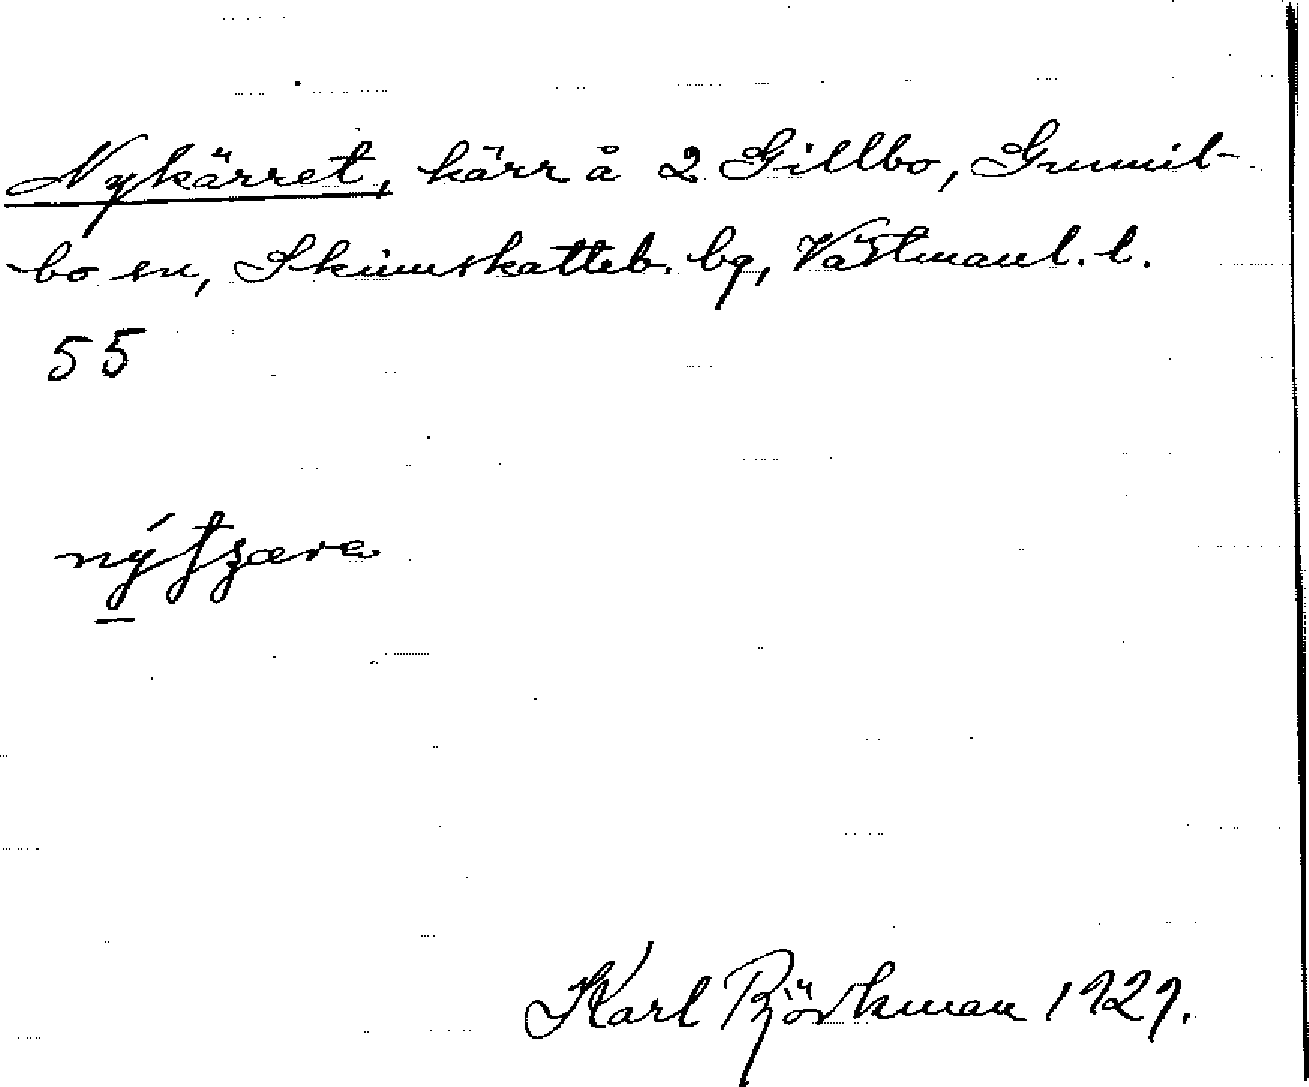 Nykärret, kärr å 2 Gillbo, Gunnil-
bo sn, Skinnskatteb. bg, Västmanl. l.
55
nýtʒæra
Karl Björkman 1929.